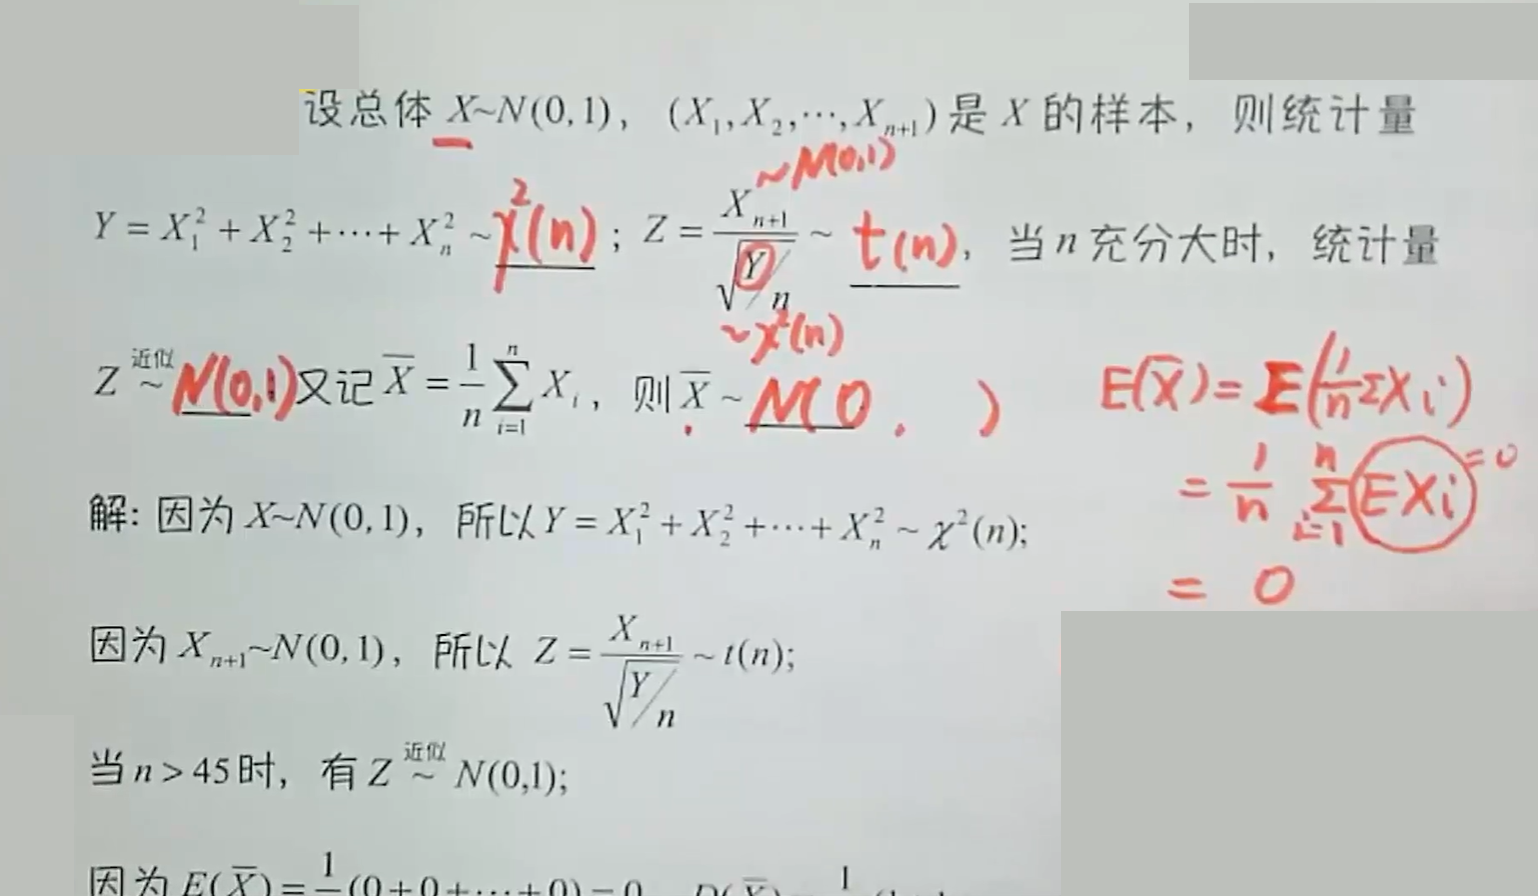 设总体 X~N(0,1)，(X₁,X₂,⋯,Xₙ₊₁)是 X 的样本，则统计量
~N(0,1)
Y = X₁² + X₂² + ⋯ + Xₙ² ~ χ²(n)；Z = Xₙ₊₁/√(Y/n) ~ t(n)，当 n 充分大时，统计量
~χ²(n)
Z 近似~ N(0,1) 又记 X̄ = 1/n ∑ᵢ₌₁ⁿ Xᵢ，则 X̄ ~ N(0 , )
E(X̄) = E(1/n ΣXᵢ)
= 1/n Σᵢ₌₁ⁿ EXᵢ =0
= 0
解: 因为 X~N(0,1)，所以 Y = X₁² + X₂² + ⋯ + Xₙ² ~ χ²(n);
因为 Xₙ₊₁~N(0,1)，所以 Z = Xₙ₊₁/√(Y/n) ~ t(n);
当 n > 45 时，有 Z 近似~ N(0,1);
因为 E(X̄) = 1 (0+0+⋯+0) = 0 D(X̄) = 1